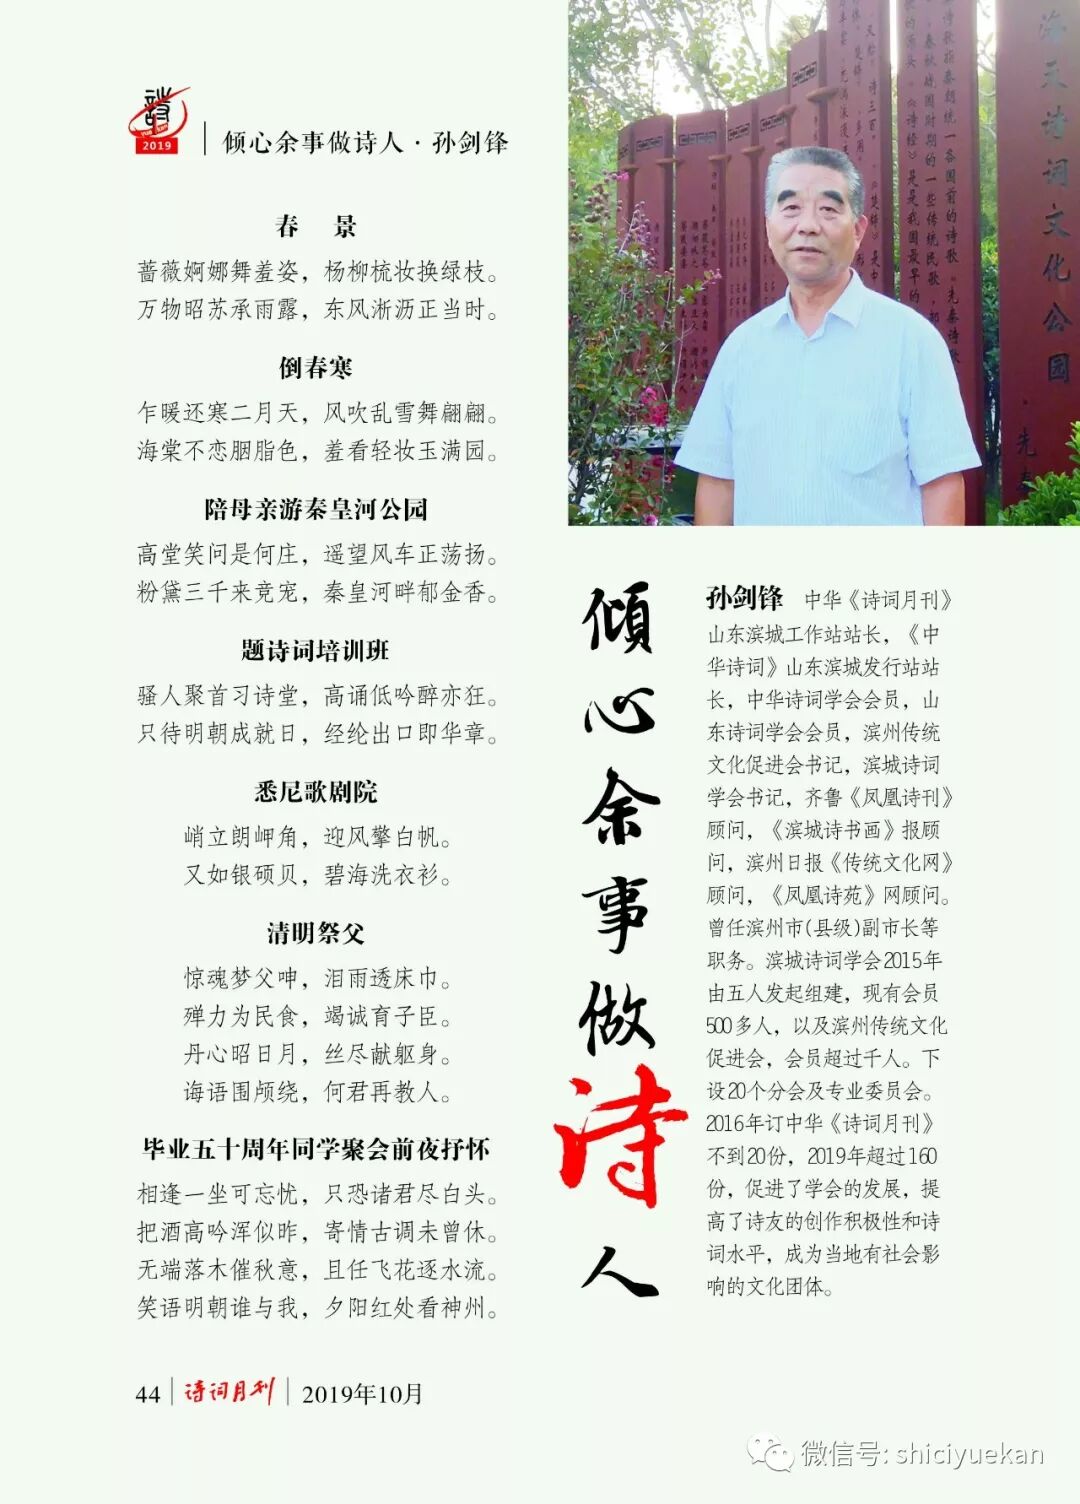 诗
YUE KAN
2019
倾心余事做诗人·孙剑锋
春 景
蔷薇婀娜舞羞姿，杨柳梳妆换绿枝。
万物昭苏承雨露，东风淅沥正当时。
倒春寒
乍暖还寒二月天，风吹乱雪舞翩翩。
海棠不恋胭脂色，羞看轻妆玉满园。
陪母亲游秦皇河公园
高堂笑问是何庄，遥望风车正荡扬。
粉黛三千来竞宠，秦皇河畔郁金香。
题诗词培训班
骚人聚首习诗堂，高诵低吟醉亦狂。
只待明朝成就日，经纶出口即华章。
悉尼歌剧院
峭立朗岬角，迎风擎白帆。
又如银硕贝，碧海洗衣衫。
清明祭父
惊魂梦父呻，泪雨透床巾。
殚力为民食，竭诚育子臣。
丹心昭日月，丝尽献躯身。
诲语围颅绕，何君再教人。
毕业五十周年同学聚会前夜抒怀
相逢一坐可忘忧，只恐诸君尽白头。
把酒高吟浑似昨，寄情古调未曾休。
无端落木催秋意，且任飞花逐水流。
笑语明朝谁与我，夕阳红处看神州。
海天诗词文化公园
先秦
倾心余事做诗人
孙剑锋 中华《诗词月刊》
山东滨城工作站站长，《中
华诗词》山东滨城发行站站
长，中华诗词学会会员，山
东诗词学会会员，滨州传统
文化促进会书记，滨城诗词
学会书记，齐鲁《凤凰诗刊》
顾问，《滨城诗书画》报顾
问，滨州日报《传统文化网》
顾问，《凤凰诗苑》网顾问。
曾任滨州市(县级)副市长等
职务。滨城诗词学会2015年
由五人发起组建，现有会员
500多人，以及滨州传统文化
促进会，会员超过千人。下
设20个分会及专业委员会。
2016年订中华《诗词月刊》
不到20份，2019年超过160
份，促进了学会的发展，提
高了诗友的创作积极性和诗
词水平，成为当地有社会影
响的文化团体。
44 诗词月刊 2019年10月
微信号: shiciyuekan